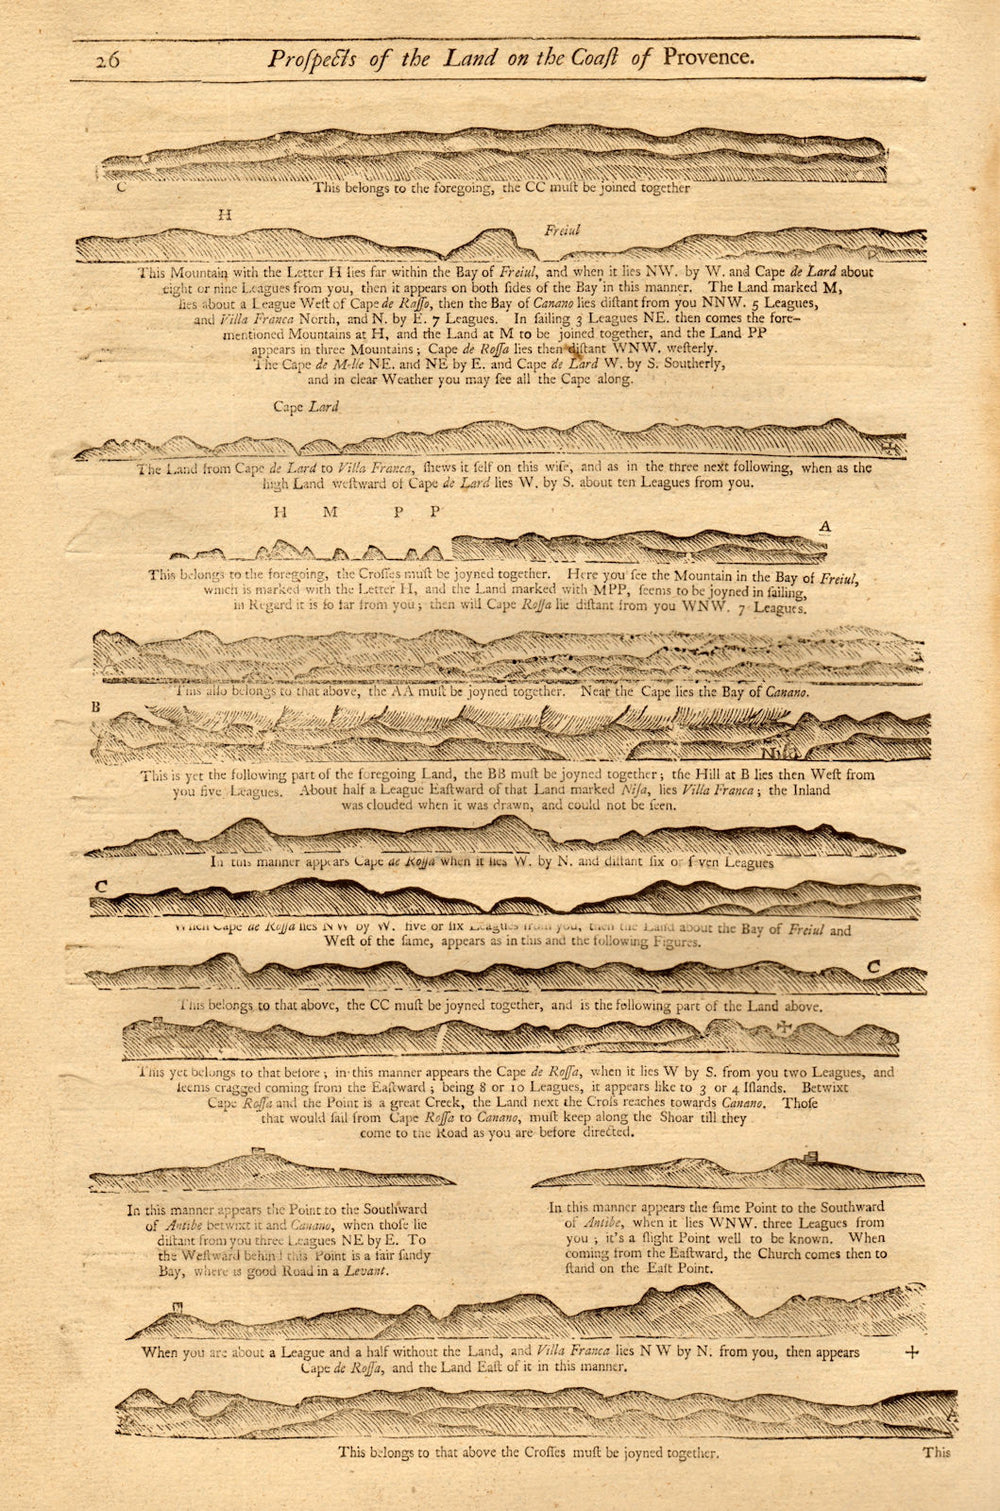 26
Proſpects of the Land on the Coaſt of Provence.
C
This belongs to the foregoing, the CC muſt be joined together
H
Freiul
D
This Mountain with the Letter H lies far within the Bay of Freiul, and when it lies NW. by W. and Cape de Lard about
eight or nine Leagues from you, then it appears on both ſides of the Bay in this manner. The Land marked M,
lies about a League Weſt of Cape de Raſſo, then the Bay of Canano lies diſtant from you NNW. 5 Leagues,
and Villa Franca North, and N. by E. 7 Leagues. In ſailing 3 Leagues NE. then comes the fore-
mentioned Mountains at H, and the Land at M to be joined together, and the Land PP
appears in three Mountains; Cape de Roſſa lies then diſtant WNW. weſterly.
The Cape de M-lle NE. and NE by E. and Cape de Lard W. by S. Southerly,
and in clear Weather you may ſee all the Cape along.
Cape Lard
The Land from Cape de Lard to Villa Franca, ſhews it ſelf on this wiſe, and as in the three next following, when as the
high Land weſtward of Cape de Lard lies W. by S. about ten Leagues from you.
H M P P
A
This belongs to the foregoing, the Croſſes muſt be joyned together. Here you ſee the Mountain in the Bay of Freiul,
which is marked with the Letter H, and the Land marked with MPP, ſeems to be joyned in ſailing,
in Regard it is ſo far from you; then will Cape Roſſa lie diſtant from you WNW. 7 Leagues.
A
This alſo belongs to that above, the AA muſt be joyned together. Near the Cape lies the Bay of Canano.
B
Niſa
This is yet the following part of the foregoing Land, the BB muſt be joyned together; the Hill at B lies then Weſt from
you five Leagues. About half a League Eaſtward of that Land marked Niſa, lies Villa Franca; the Inland
was clouded when it was drawn, and could not be ſeen.
In this manner appears Cape de Roſſa when it lies W. by N. and diſtant ſix or ſeven Leagues
C
When Cape de Roſſa lies NW by W. five or ſix Leagues from you, then the Land about the Bay of Freiul and
Weſt of the ſame, appears as in this and the following Figures.
C
This belongs to that above, the CC muſt be joyned together, and is the following part of the Land above.
This yet belongs to that before; in this manner appears the Cape de Roſſa, when it lies W by S. from you two Leagues, and
ſeems cragged coming from the Eaſtward; being 8 or 10 Leagues, it appears like to 3 or 4 Iſlands. Betwixt
Cape Roſſa and the Point is a great Creek, the Land next the Croſs reaches towards Canano. Thoſe
that would ſail from Cape Roſſa to Canano, muſt keep along the Shoar till they
come to the Road as you are before directed.
In this manner appears the Point to the Southward
of Antibe betwixt it and Canano, when thoſe lie
diſtant from you three Leagues NE by E. To
the Weſtward behind this Point is a fair ſandy
Bay, where is good Road in a Levant.
In this manner appears the ſame Point to the Southward
of Antibe, when it lies WNW. three Leagues from
you; it's a ſlight Point well to be known. When
coming from the Eaſtward, the Church comes then to
ſtand on the Eaſt Point.
When you are about a League and a half without the Land, and Villa Franca lies NW by N. from you, then appears
Cape de Roſſa, and the Land Eaſt of it in this manner.
A
This belongs to that above the Croſſes muſt be joyned together.
This